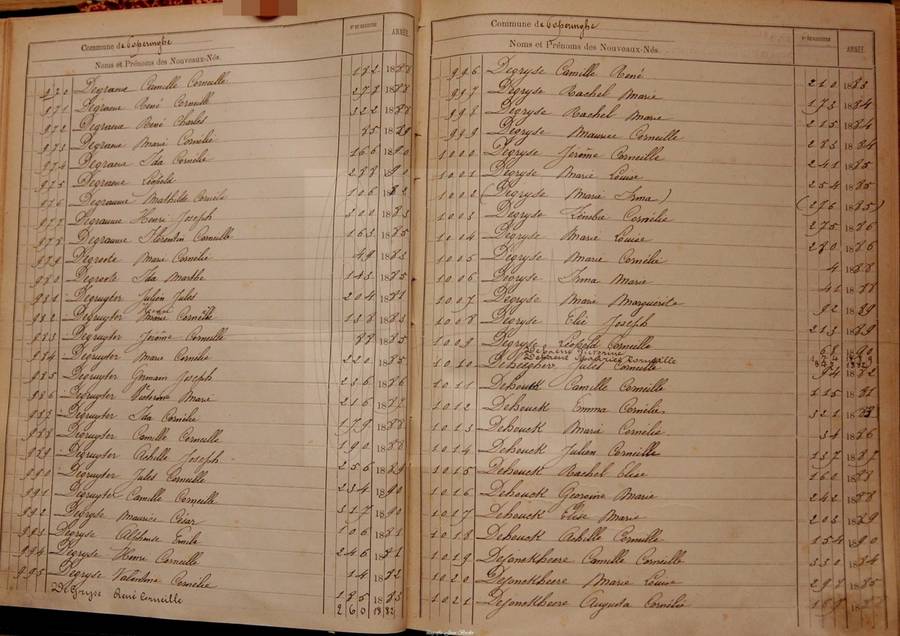 Commune de Poperinghe
N° DU REGISTRE
ANNÉE
Noms et Prénoms des Nouveaux-Nés.
970 Degraeve Camille Corneille 132 1888
971 Degraeve René Corneille 277 1888
972 Degraeve René Charles 322 1888
973 Degraeve Marie Cornélie 85 1889
974 Degraeve Ida Cornélie 166 1890
975 Degraeve 288 1890
976 Degraeuwe Mathilde Cornélie 106 1882
977 Degraeuwe Henri Joseph 300 1883
978 Degraeuwe Florentin Corneille 163 1885
979 Degroote Marie Cornélie 49 1882
980 Degroote Ida Marthe 143 1885
981 Degruyter Julien Jules 204 1881
982 Degruyter Cornélie 138 1883
983 Degruyter Jérôme Corneille 1885
984 Degruyter Marie Cornélie 220 1885
985 Degruyter Germain Joseph 236 1886
986 Degruyter Victorine Marie 216 1887
987 Degruyter Ida Cornélie 179 1888
988 Degruyter Camille Corneille 190 1888
989 Degruyter Achille Joseph 256 1889
990 Degruyter Jules Corneille 234 1890
991 Degruyter Camille Corneille 317 1890
992 Degryse Maurice César 106 1881
993 Degryse Alphonse Emile 246 1881
994 Degryse Henri Corneille 14 1882
995 Degryse Valentine Cornélie 185 1883
Degryse René Corneille 260 1882
Commune de Poperinghe
N° DU REGISTRE
ANNÉE
Noms et Prénoms des Nouveaux-Nés.
996 Degryse Camille René 210 1883
997 Degryse Rachel Marie 173 1884
998 Degryse Rachel Marie 215 1884
999 Degryse Maurice Corneille 283 1884
1000 Degryse Jérôme Corneille 241 1885
1001 Degryse Marie Louise 254 1885
1002 (Degryse Marie Irma) (276 1885)
1003 Degryse Zénobie Cornélie 275 1886
1004 Degryse Marie Louise 280 1886
1005 Degryse Marie Cornélie 4 1888
1006 Degryse Irma Marie 41 1888
1007 Degryse Marie Marguerite 92 1889
1008 Degryse Elie Joseph 213 1889
1009 Degryse Léopold Corneille 68 1890
1010 Jules Corneille 94 1882
1011 Dehouck Camille Corneille 115 1881
1012 Dehouck Emma Cornélie 321 1883
1013 Dehouck Marie Cornélie 34 1886
1014 Dehouck Julien Corneille 137 1887
1015 Dehouck Rachel Elise 160 1888
1016 Dehouck Georgine Marie 242 1888
1017 Dehouck Elise Marie 203 1889
1018 Dehouck Achille Corneille 154 1890
1019 Dejonckheere Camille Corneille 330 1884
1020 Dejonckheere Marie Louise 297 1885
1021 Dejonckheere Augusta Cornélie